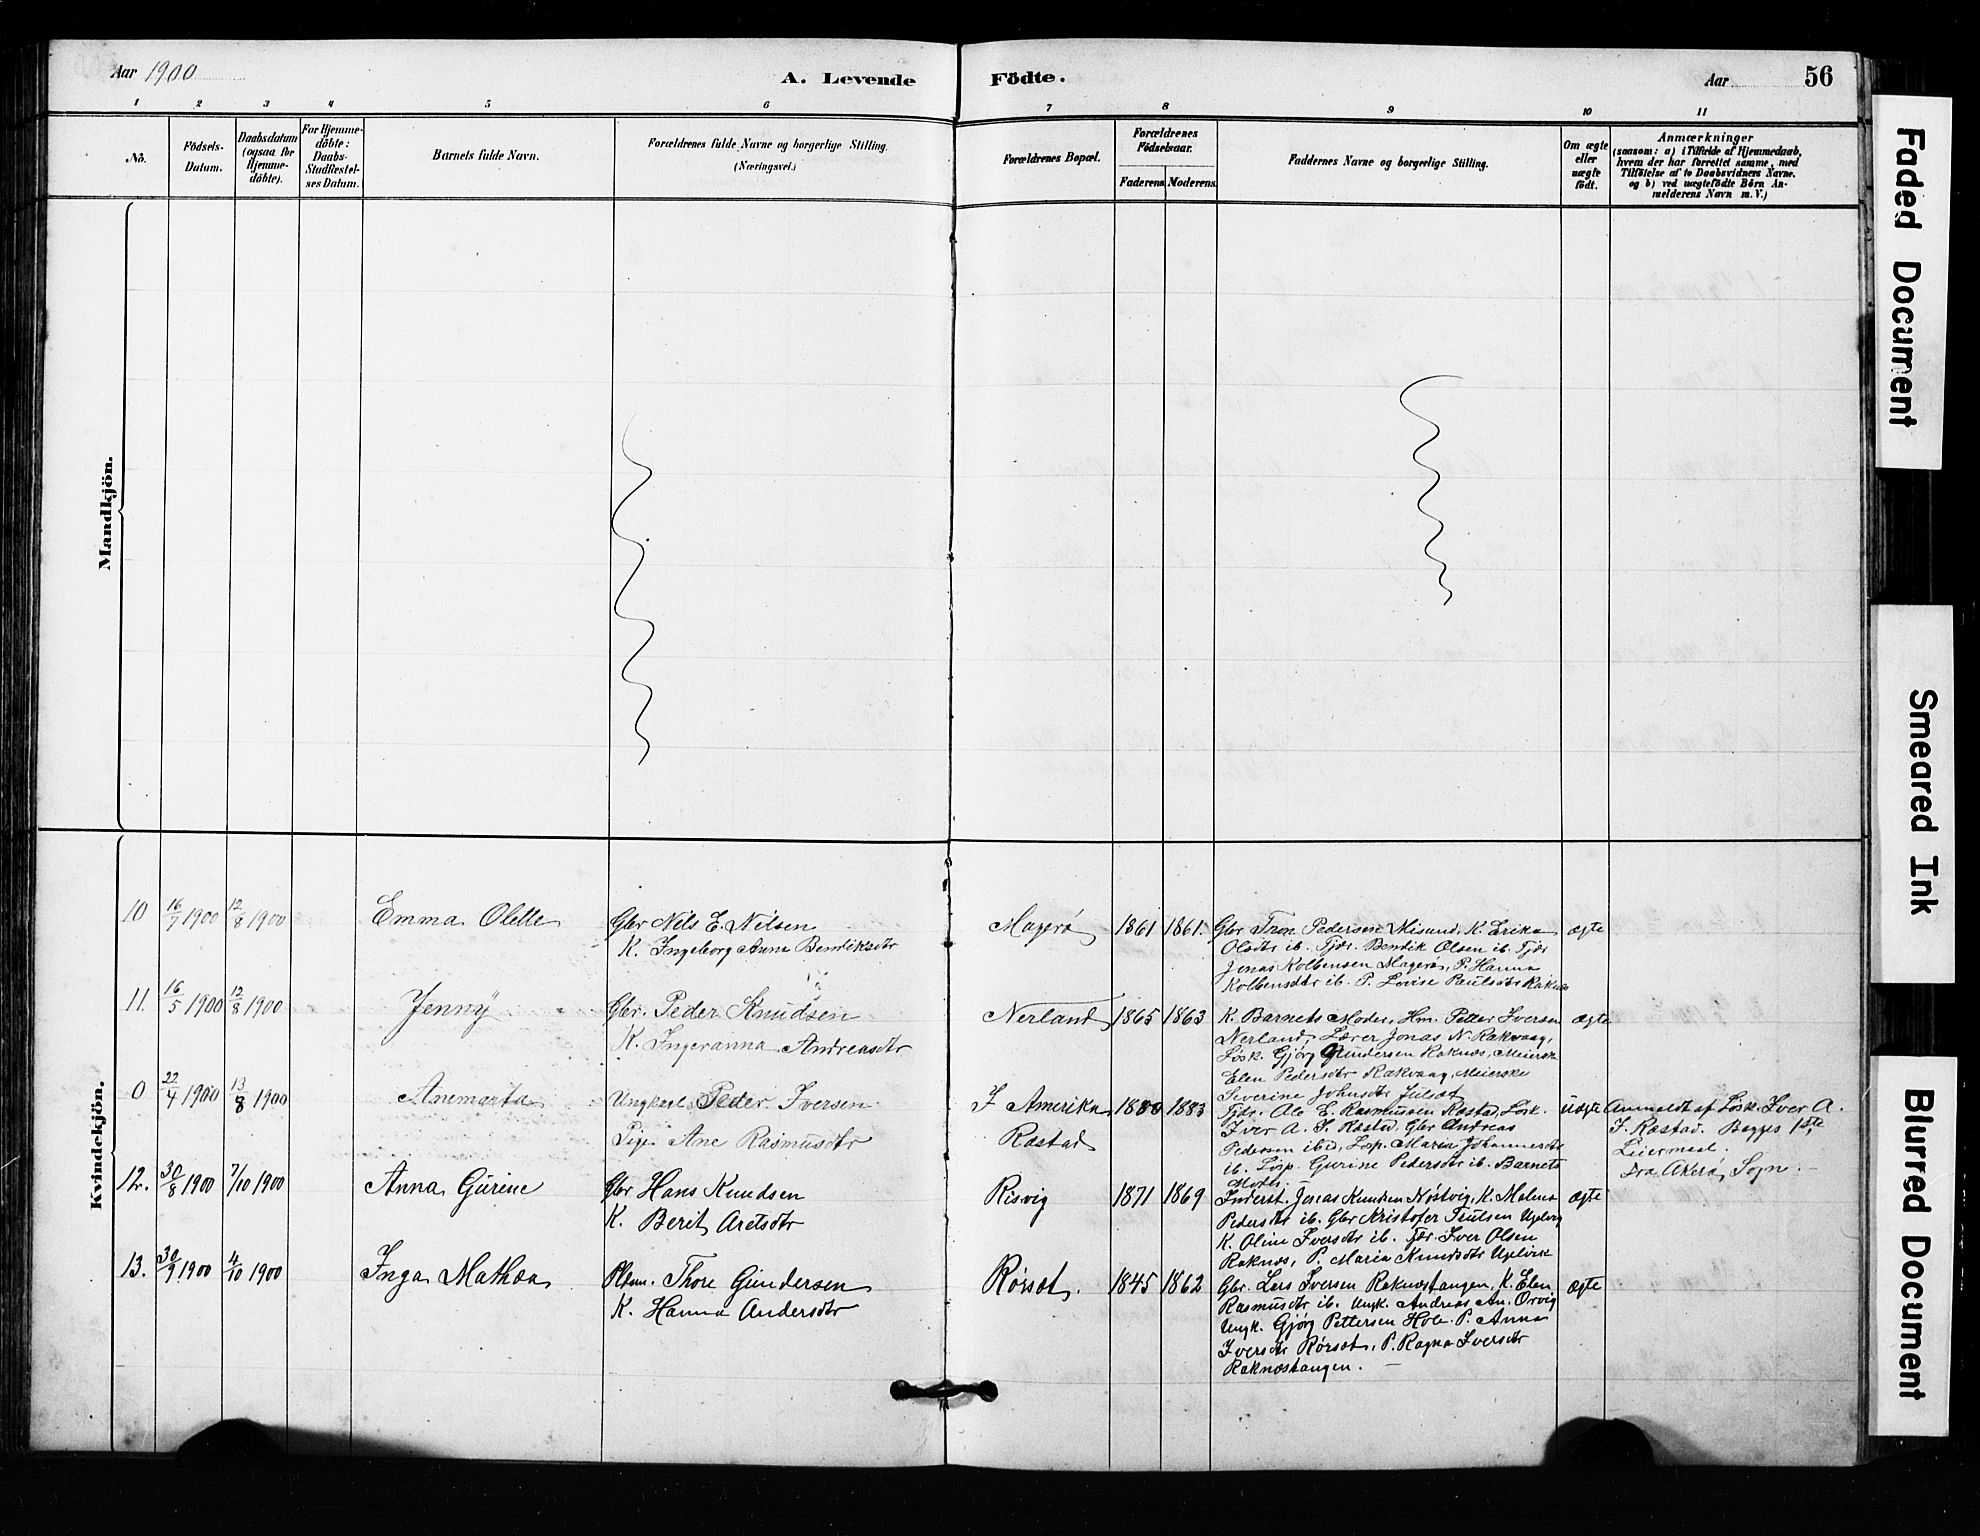 Aar 1900
A. Levende Födte.
Aar
56
1 2 3 4 5 6 7 8 9 10 11
No.
Födsels-
Datum.
Daabsdatum
(ogsaa for
Hjemme-
döbte).
For Hjemme-
döbte:
Daabs-
Stadfæstel-
ses Datum.
Barnets fulde Navn.
Forældrenes fulde Navne og borgerlige Stilling.
(Næringsvei.)
Forældrenes Bopæl.
Forældrenes
Födselsaar.
Faderens Moderens
Faddernes Navne og borgerlige Stilling.
Om ægte
eller
uægte
födt.
Anmærkninger
(saasom: a) i Tilfælde af Hjemmedaab,
hvem der har forrettet samme, med
Tilföielse af to Daabsvidners Navne,
og b) ved uægtefödte Börn An-
melderens Navn m.V.)
Mandkjön.
Kvindekjön.
10 16/7 1900 12/8 1900 Emma Olette
Gbr Nils E. Nilsen
K. Ingeborg Anne Bendiksdtr
Magerø 1861 1861.
Gbr Tron Pedersen Misund, K. Erika
Olsdtr ib. Tjdr. Bendik Olsen ib. Tjdr
Jonas Kolbensen Magerø, P. Hanna
Kolbensdtr ib. P. Lovise Paulsdtr Raknæs
ægte
11. 16/5 1900 12/8 1900 Jenny
Gbr. Peder Knudsen
K. Ingeranna Andreasdtr
Nerland 1865 1863
K. Barnets Moder, Hm. Petter Iversen
Nerland, Lærer Jonas N. Rakvaag,
Løsk. Gjørg Gundersen Raknæs, Meierske
Elen Pedersdtr Rakvaag, Meierske
Severine Johnsdtr Julsæt
ægte
0 22/4 1900 13/8 1900 Anemarta
Ungkarl Peder Iversen
Pige Ane Rasmusdtr
I Amerika
Røstad
1880 1883
Tjdr. Ole E. Rasmussen Røstad, Løsk.
Iver A. I. Røstad, Gbr Andreas
Pedersen ibid, Løsp. Maria Johannesdtr
ib. Løsp. Gurine Pedersdtr ib. Barnets
Moder.
uægte
Anmeldt af Løsk. Iver A.
I. Røstad. Begges 1ste
Leiermaal.
Fra Akerø Sogn. –
12. 30/8 1900 7/10 1900 Anna Gurine
Gbr Hans Knudsen
K. Berit Aretsdtr
Risvig 1871 1869
Inderst Jonas Knudsen Nøstvig, K. Malena
Pedersdtr ib. Gbr Kristofer Trulsen Ugelvig
K. Oline Iversdtr ib. Tjdr. Iver Olsen
Raknæs, P. Maria Knudsdtr Ugelvik
ægte
13. 30/9 1900 4/10 1900 Inga Mathea
Plsm. Thore Gundersen
K. Hanna Andersdtr
Rørsæt. 1845 1862
Gbr. Lars Iversen Raknæstangen, K. Elen
Rasmusdtr ib. Ungk. Andreas An. Orvig
Ungk. Gjørg Pettersen Hole P. Anna
Iversdtr Rørsæt, P. Ragna Iversdtr
Raknæstangen. –
ægte
Faded Document
Smeared Ink
Blurred Document